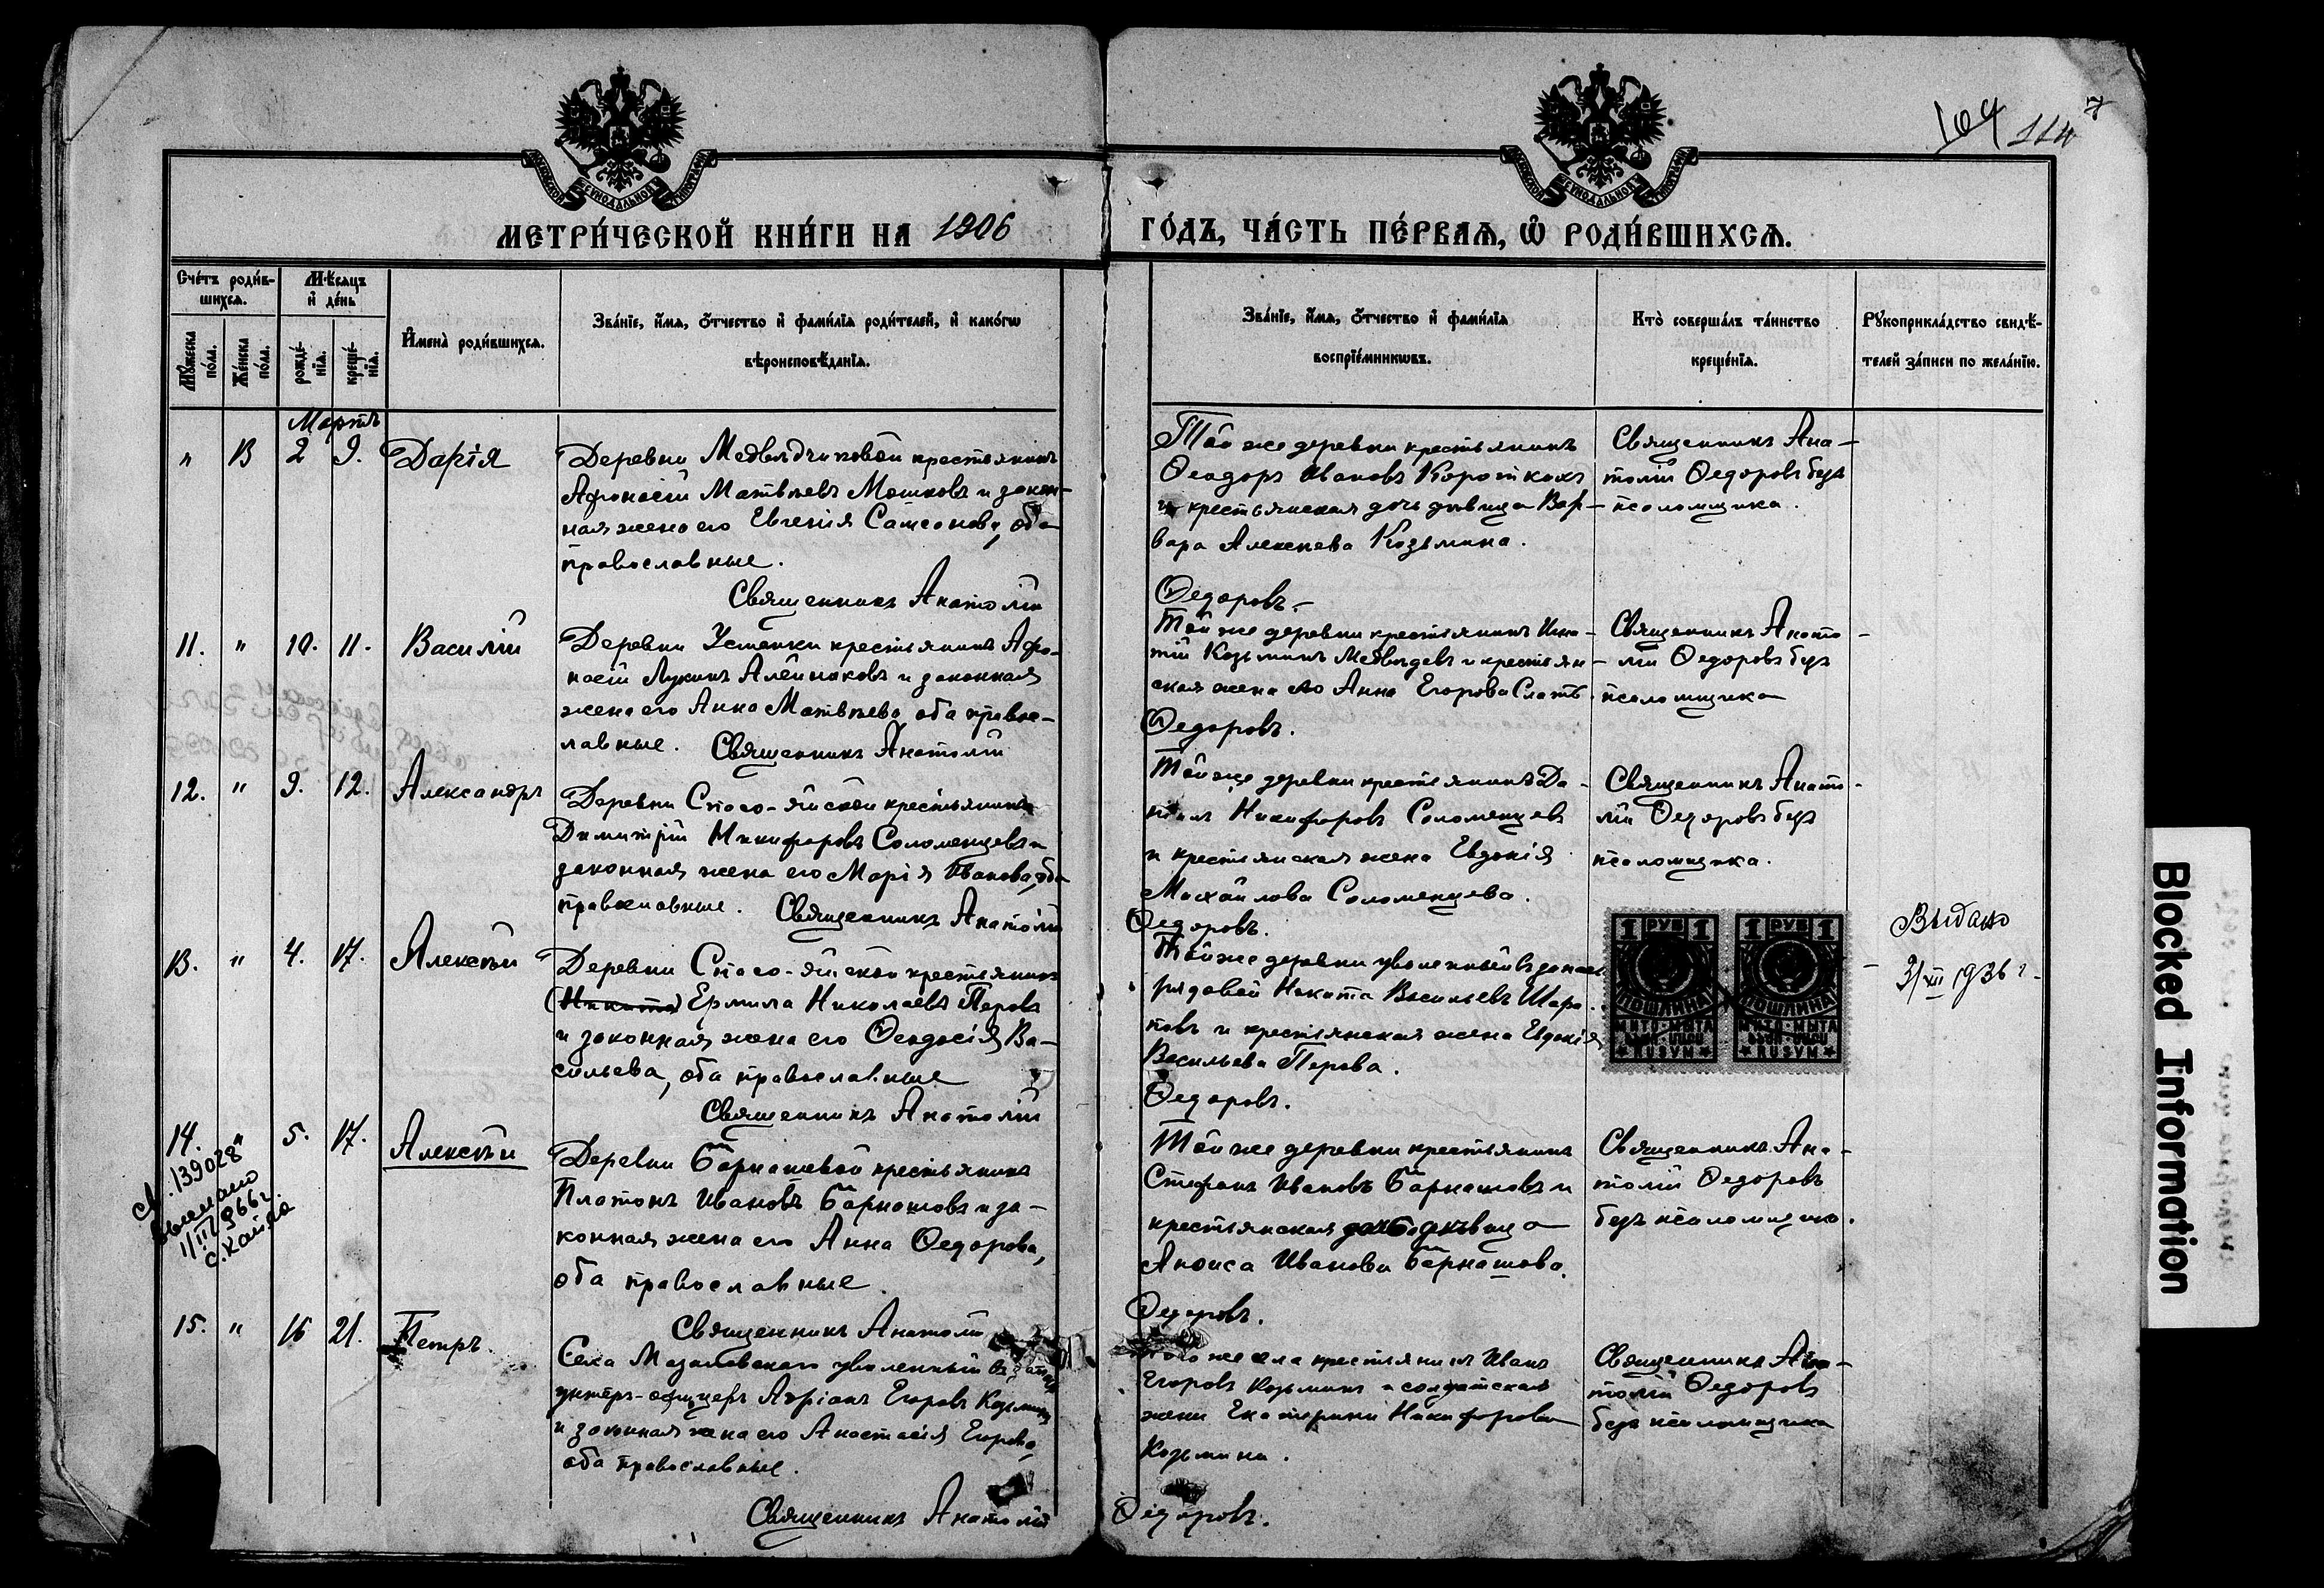 109 114 7
МЕТРИ́ЧЕСКОЙ КНИ́ГИ НА 1906 ГО́ДЪ, ЧА́СТЬ ПЕ́РВАѦ, Ѡ҆ РОДИ́ВШИХСѦ.
Сче́тъ роди́вшихсѧ.
Мꙋ́жеска по́ла.
Же́нска по́ла.
Мѣ́сѧцъ и҆ де́нь
рожде́нїѧ.
креще́нїѧ.
И҆мена̀ роди́вшихсѧ.
Зва́нїе, и҆́мѧ, ѻ҆́тчество и҆ фами́лїѧ роди́телей, и҆ како́гѡ
вѣроисповѣ́данїѧ.
Зва́нїе, и҆́мѧ, ѻ҆́тчество и҆ фами́лїѧ
воспрїе́мникѡвъ.
Кто̀ соверша́лъ та́инство
креще́нїѧ.
Рꙋкоприкла́дство свидѣ́-
телей за́писи по жела́нїю.
Мартъ
" 13 2 9. Дарія
Деревни Медвѣдчиковой крестьянинъ
Афонасій Матвѣевъ Мошковъ и закон-
ная жена его Евгенія Самсонова, оба
православные.
Священникъ Анатолій
Той же деревни крестьянинъ
Ѳеодоръ Ивановъ Коротких
и крестьянская дочь дѣвица Вар-
вара Алексѣева Козьмина.
Ѳедоровъ.
Священникъ Ана-
толій Ѳедоровъ безъ
псаломщика.
11. " 10. 11. Василій
Деревни Усманки крестьянинъ Афо-
насій Лукинъ Алейниковъ и законная
жена его Анна Матвѣева, оба правос-
лавные. Священникъ Анатолій
Той же деревни крестьянинъ
Козьминъ Медвѣдевъ и крестьян-
ская жена его Анна Егорова
Ѳедоровъ.
Священникъ Анато-
лій Ѳедоровъ безъ
псаломщика
12. " 9. 12. Александръ
Деревни Спасо-Яйской крестьянинъ
Димитрій Никифоровъ Соломенцевъ и
законная жена его Марія Иванова, оба
православные. Священникъ Анатолій
Той же деревни крестьянинъ Да-
ніилъ Никифоровъ Соломенцевъ
и крестьянская жена Евдокія
Михайлова Соломенцева.
Ѳедоровъ.
Священникъ Анато-
лій Ѳедоровъ безъ
псаломщика.
13. " 4. 17. Алексѣй
Деревни Спасо-Яйской крестьянинъ
(Никита) Ермила Николаевъ Перовъ
и законная жена его Ѳеодосія Ва-
сильева, оба православные
Священникъ Анатолій
Той же деревни уволенный въ запас
рядовой Никита Васильевъ Шара-
повъ и крестьянская жена Евдокія
Васильева Перова.
Ѳедоровъ.
1 РУБ 1
ПОШЛИНА
МИТО·МЫТА
RUSYM
1 РУБ 1
ПОШЛИНА
МИТО·МЫТА
RUSYM
Выдано
31/XII 1936 г.
14. " 5. 17. Алексѣй
139028
1/III 1966 г.
Деревни Барнашевой крестьянинъ
Платонъ Ивановъ Барнашовъ и за-
конная жена его Анна Ѳедорова,
оба православные.
Священникъ Анатолій
Той же деревни крестьянинъ
Стефанъ Ивановъ Барнашовъ и
крестьянская дочь дѣвица
Анфиса Иванова Барнашова.
Ѳедоровъ.
Священникъ Ана-
толій Ѳедоровъ
безъ псаломщика.
15. " 16 21. Петръ.
Села Мазаловского уволенный въ запасъ
унтеръ-офицеръ Адріанъ Егоровъ Козьминъ
и законная жена его Анастасія Егорова,
оба православные.
Священникъ Анатолій
Того же села крестьянинъ Иванъ
Егоровъ Козьминъ и солдатская
жена Екатерина Никифорова
Козьмина.
Ѳедоровъ.
Священникъ Ана-
толій Ѳедоровъ
безъ псаломщика
Blocked Information